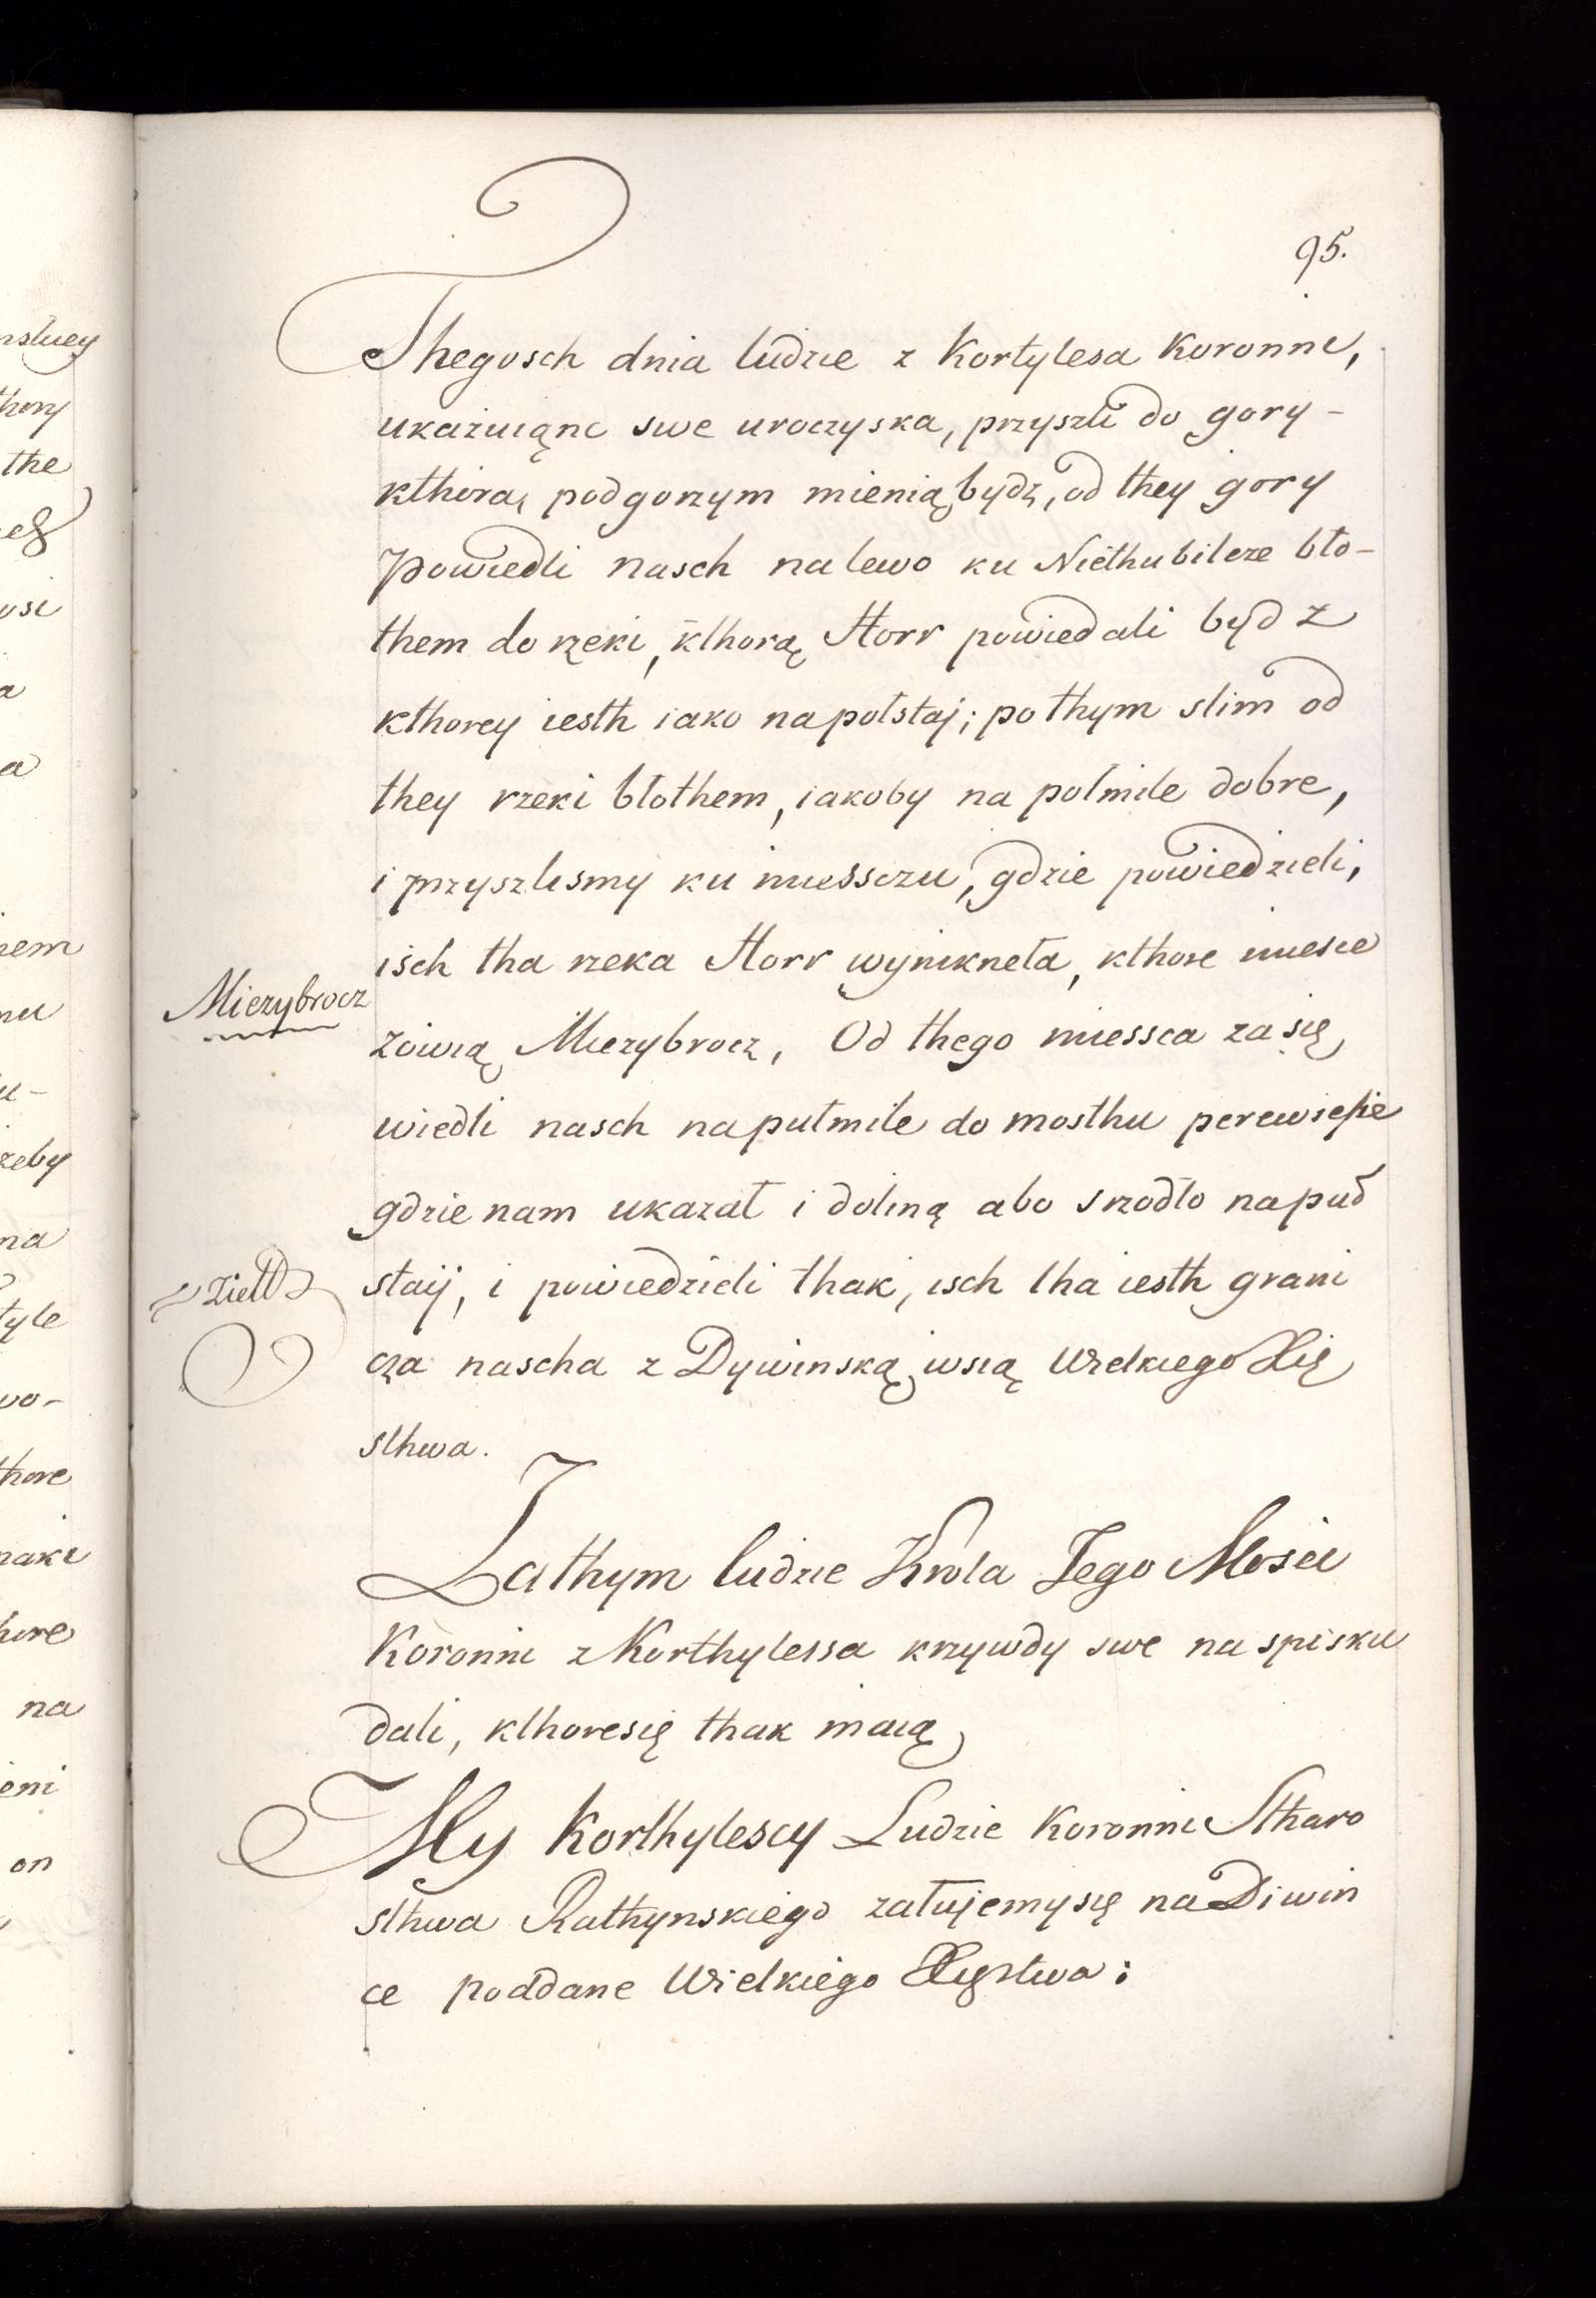 95.
Thegosch dnia ludzie z Kortylesa Koronni,
ukazuiąnc swe uroczyska, przyszli do gory -
kthora, podgorzym mienią bydz, od they gory
powiedli nasch na lewo ku Niethubilcze bło-
them do rzeki, kthorą Horr powiedali bydz
kthorey iesth iako na połstaj; po thym slim od
they rzeki błothem, iakoby na połmile dobre,
i przyszlismy ku miessczu, gdzie powiedzieli,
isch tha rzeka Horr wyniknęła, kthore miesce
Miezybrocz
zowią Miezybrocz, Od thego miessca za się
wiedli nasch na pułmile do mosthu perewisżie
gdzie nam ukazał i doliną abo srzodło na pud
staij, i powiedzieli thak, isch tha iesth grani
cza nascha z Dywinską wsią Wielkiego Xię
sthwa.
Zathym ludzie Krola Jego Mosci
Koronni z Korthylessa krzywdy swe na spisku
dali, kthoresię thak maią
My Korthylescy Ludzie Koronni Stharo
sthwa Rathynskiego załujemy się na Diwin
ce poddane Wielkiego Xięstwa: